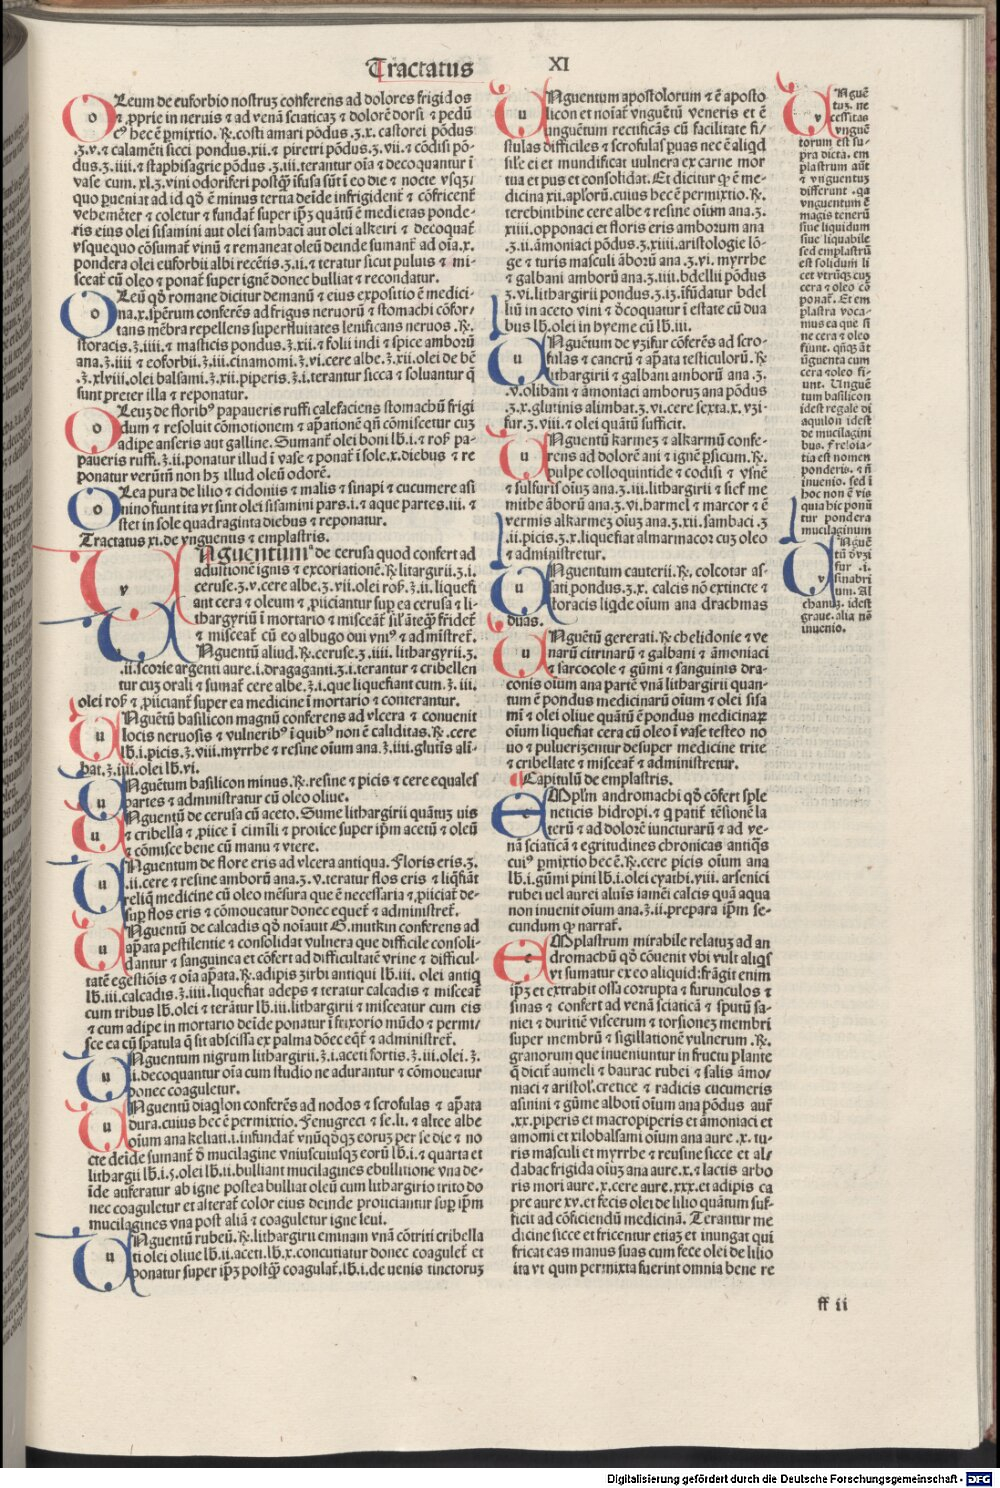 Tractatus XI
OLeum de euforbio nostruʒ conferens ad dolores frigidos
⁊ ꝓprie in neruis ⁊ ad venã sciaticaʒ ⁊ dolorẽ dorsi ⁊ pedũ
cꝰ hec ẽ ꝑmixtio. ℞. costi amari põdus .ʒ.x. castorei põdus
.ʒ.v. ⁊ calamẽti sicci pondus.xii. ⁊ piretri põdus.ʒ.vii. ⁊ cõdisi põ-
dus.ʒ.iiii. ⁊ staphisagrie põdus.ʒ.iii. terantur oĩa ⁊ decoquantur ĩ
vase cum.xl.ʒ.vini odoriferi postq̃ ĩfusa sũt ĩ eo die ⁊ nocte vsqʒ
quo ꝑueniat ad id qđ ẽ minus tertia deĩde infrigident̃ ⁊ cõfricent̃
vehemẽter ⁊ coletur ⁊ fundat̃ super ip̃ʒ quãtũ ẽ medietas ponde-
ris eius olei sisamini aut olei sambaci aut olei alkeiri ⁊ decoquat̃
vsquequo cõsumat̃ vinũ ⁊ remaneat oleũ deinde sumant̃ ad oĩa.x.
pondera olei euforbii albi recẽtis.ʒ.ii. ⁊ teratur sicut puluis ⁊ mi-
sceat̃ cũ oleo ⁊ ponat̃ super ignẽ donec bulliat ⁊ recondatur.
OLeũ qđ romane dicitur demanũ ⁊ eius expositio ẽ medici-
na.x. ip̃erũm conferẽs ad frigus neruorũ ⁊ stomachi cõfor-
tans mẽbra repellens superfluitates lenificans neruos. ℞.
storacis.ʒ.iiii. ⁊ masticis pondus.ʒ.xii. ⁊ folii indi ⁊ spice amborũ
ana.ʒ.iiii ⁊ eoforbii.ʒ.iii. cinamomi.ʒ.vi. cere albe.ʒ.xii. olei de bẽ
.ʒ.xlviii. olei balsami.ʒ.xii. piperis.ʒ.i. terantur sicca ⁊ soluantur q̃
sunt preter illa ⁊ reponatur.
OLeuʒ de floribꝰ papaueris ruffi calefaciens stomachũ frigi
dum ⁊ resoluit cõmotionem ⁊ ap̃ationẽ qñ cõmiscetur cuʒ
adipe anseris aut galline. Sumant̃ olei boni lb̃.i. ⁊ rof̃ pa-
paueris ruffi.ʒ.ii. ponatur illud ĩ vase ⁊ ponat̃ ĩ sole.x. diebus ⁊ re
ponatur verũtñ non hʒ illud oleũ odorẽ.
OLea pura de lilio ⁊ cidoniis ⁊ malis ⁊ sinapi ⁊ cucumere asi
nino fiunt ita vt sint olei sisamini pars.i. ⁊ aque partes.iii. ⁊
stet in sole quadraginta diebus ⁊ reponatur.
Tractatus xi. de vnguentis ⁊ emplastris.
VNguentum de cerusa quod confert ad
adustionẽ ignis ⁊ excoriationẽ. ℞. litargirii.ʒ.i.
ceruse.ʒ.v. cere albe.ʒ.vii. olei rof̃.ʒ.ii. liquefi
ant cera ⁊ oleum ⁊ ꝓiiciantur sup ea cerusa ⁊ li-
thargyriũ ĩ mortario ⁊ misceãt̃ sil̃ ãteqʒ frident̃
⁊ misceat̃ cũ eo albugo oui vniꝰ ⁊ administret̃.
VNguentũ aliud. ℞. ceruse.ʒ.iiii. lithargyrii.ʒ.
.ii. scorie argenti aure.i. dragaganti.ʒ.i. terantur ⁊ cribellen
tur cuʒ orali ⁊ sumat̃ cere albe.ʒ.i. que liquefiant cum.ʒ.iii.
olei rof̃ ⁊ ꝓiiciant̃ super ea medicine ĩ mortario ⁊ conterantur.
UNguẽtũ basilicon magnũ conferens ad vlcera ⁊ conuenit
locis neruosis ⁊ vulneribꝰ ĩ quibꝰ non ẽ caliditas. ℞. cere
lb̃.i. picis.ʒ.viii. myrrhe ⁊ resine oĩum ana.ʒ.iiii. glutĩs alĩ
bat.ʒ.iiii. olei lb̃.vi.
UNguẽtum basilicon minus. ℞. resine ⁊ picis ⁊ cere equales
partes ⁊ administratur cũ oleo oliue.
UNguẽtũ de cerusa cũ aceto. Sume lithargirii quãtuʒ uis
⁊ cribella ⁊ ꝓiice ĩ cimili ⁊ proiice super ip̃m acetũ ⁊ oleũ
⁊ cõmisce bene cũ manu ⁊ vtere.
UNguentum de flore eris ad vlcera antiqua. Floris eris.ʒ.
.ii. cere ⁊ resine amborũ ana.ʒ.v. teratur flos eris ⁊ liq̃fiãt
reliq̃ medicine cũ oleo mẽsura que ẽ necessaria ⁊ ꝓiiciat̃ de-
sup̃ flos eris ⁊ cõmoueatur donec equet̃ ⁊ administret̃.
UNguentũ de calcadis qđ noĩauit G. mutkin conferens ad
ap̃ata pestilentie ⁊ consolidat vulnera que difficile consoli-
dantur ⁊ sanguinea et cõfert ad difficultatẽ vrine ⁊ difficul-
tatẽ egestiõis ⁊ oĩa ap̃ata. ℞. adipis zirbi antiqui lb̃.iii. olei antiq̃
lb̃.iii. calcadis.ʒ.iiii. liquefiat adeps ⁊ teratur calcadis ⁊ misceat̃
cum tribus lb̃. olei ⁊ terãtur lb̃.iii. lithargirii ⁊ misceatur cum eis
⁊ cum adipe in mortario deĩde ponatur ĩ frixorio mũdo ⁊ permi-
sce ea cũ spatula q̃ sit abscissa ex palma dõec eq̃t̃ ⁊ administret̃.
UNguentum nigrum lithargirii.ʒ.i. aceti fortis.ʒ.iii. olei.ʒ.
i. decoquantur oĩa cum studio ne adurantur ⁊ cõmoueatur
donec coaguletur.
UNguentũ diaq̃lon conferẽs ad nodos ⁊ scrofulas ⁊ ap̃ata
dura. cuius hec ẽ permixtio. Fenugreci ⁊ se.li. ⁊ altee albe
oĩum ana keliati.i. infundat̃ vnũqđqʒ eoruʒ per se die ⁊ no
cte deĩde sumant̃ ð mucilagine vniuscuiusqʒ eorũ lb̃.i. ⁊ quarta et
lithargii lb̃.i.s. olei lb̃.ii. bulliant mucilagines ebullitione vna de-
ĩde auferatur ab igne postea bulliat oleũ cum lithargirio trito do
nec coaguletur et alterat̃ color eius deinde proiiciantur sup ip̃m
mucilagines vna post aliã ⁊ coaguletur igne leui.
UNguentũ rubeũ. ℞. lithargirii eminam vnã cõtriti cribella
ti olei oliue lb̃.ii. aceti.lb̃.x. concutiatur donec coagulet̃ et
ponatur super ip̃ʒ postq̃ʒ coagulat̃.lb̃.i. de uenis tinctoruʒ
UNguentum apostolorum ⁊ ẽ aposto
licon et noĩat̃ vnguẽtũ veneris et ẽ
unguẽtum rectificãs cũ facilitate fi-
stulas difficiles ⁊ scrofulas puas nec ẽ aliq̃d
sil̃e ei et mundificat uulnera ex carne mor
tua et pus et consolidat. Et dicitur qꝛ ẽ me-
dicina xii. aplõrũ. cuius hec ẽ permixtio. ℞.
terebinthine cere albe ⁊ resine oĩum ana.ʒ.
xiiii. opponaci et floris eris amborum ana
.ʒ.ii. ãmoniaci põdus.ʒ.xiiii. aristologie lõ-
ge ⁊ turis masculi ãborũ ana.ʒ.vi. myrrhe
⁊ galbani amborũ ana.ʒ.iiii. bdellii põdus
ʒ.vi. lithargirii pondus.ʒ.ix. ĩfũdatur bdel
liũ in aceto vini ⁊ ðcoquatur ĩ estate cũ dua
bus lb̃. olei in hyeme cũ lb̃.iii.
UNguẽtum de vʒifur cõferẽs ad scro-
fulas ⁊ cancrũ ⁊ ap̃ata testiculorũ. ℞.
lithargirii ⁊ galbani amborũ ana.ʒ.
.v. olibani ⁊ ãmoniaci amboruʒ ana põdus
.ʒ.x. glutinis alimbat.ʒ.vi. cere sexta.x. vʒi-
fur.ʒ.viii. ⁊ olei quãtũ sufficit.
UNguentũ karmeʒ ⁊ alkarmũ confe-
rens ad dolorẽ ani ⁊ ignẽ ꝑsicum. ℞.
pulpe colloquintide ⁊ codisi ⁊ vsnẽ
⁊ sulfuris oĩuʒ ana.ʒ.iii. lithargirii ⁊ sief me
mithe ãborũ ana.ʒ.vi. harmel ⁊ marcor ⁊ ẽ
vermis alkarmeʒ oĩuʒ ana.ʒ.xii. sambaci.ʒ
.ii. picis.ʒ.x. liquefiat almarmacor cuʒ oleo
⁊ administretur.
UNguentum cauterii. ℞. colcotar as-
sati pondus.ʒ.x. calcis nõ extincte ⁊
storacis liq̃de oĩum ana drachmas
duas.
UNguẽtũ gererati. ℞. chelidonie ⁊ ve
narũ citrinarũ ⁊ galbani ⁊ ãmoniaci
⁊ sarcocole ⁊ gũmi ⁊ sanguinis dra-
conis oĩum ana partẽ vnã lithargirii quan-
tum ẽ pondus medicinarũ oĩum ⁊ olei sisa
mĩ ⁊ olei oliue quãtũ ẽ pondus medicinaꝝ
oĩum liquefiat cera cũ oleo ĩ vase testeo no
uo ⁊ pulueriʒentur desuper medicine trite
⁊ cribellate ⁊ misceat̃ ⁊ administretur.
Capitulũ de emplastris.
EMpl̃m andromachi qđ cõfert sple
neticis hidropi. ⁊ q̃ patit̃ tẽsionẽ la
terũ ⁊ ad dolorẽ iuncturarũ ⁊ ad ve-
nã sciaticã ⁊ egritudines chronicas antiq̃s
cuiꝰ ꝑmixtio hec ẽ. ℞. cere picis oĩum ana
lb̃.i. gũmi pini lb̃.i. olei cyathi.viii. arsenici
rubei uel anrei aluĩs iamẽi calcis quã aqua
non inuenit oĩum ana.ʒ.ii. prepara ip̃m se-
cundum qꝛ narrat̃.
EMplastrum mirabile relatuʒ ad an
dromachũ qđ cõuenit vbi vult aliq̃s
vt sumatur ex eo aliquid: frãgit enim
ip̃ʒ et extrahit ossa corrupta ⁊ furunculos ⁊
spinas ⁊ confert ad venã sciaticã ⁊ sputũ sa-
niei ⁊ duritiẽ viscerum ⁊ torsioneʒ membri
super membrũ ⁊ sigillationẽ vulnerum. ℞.
granorum que inueniuntur in fructu plante
q̃ dicit̃ aumeli ⁊ baurac rubei ⁊ salis ãmo-
niaci ⁊ aristol̃. cretice ⁊ radicis cucumeris
asinini ⁊ gũme alboti oĩum ana põdus aur̃
.xx. piperis et macropiperis et ãmoniaci et
amomi et xilobalsami oĩum ana aure.x. tu-
ris masculi et myrrhe ⁊ reusine sicce et al-
dabac frigida oĩuʒ ana aure.x. ⁊ lactis arbo
ris mori aure.x. cere aure.xxx. et adipis ca
pre aure xv. et fecis olei de lilio quãtum suf-
ficit ad cõficiendũ medicinã. Terantur me
dicine sicce et fricentur etiaʒ et inungat qui
fricat eas manus suas cum fece olei de lilio
ita vt qum permixta fuerint omnia bene re
UNguẽ
tuʒ. ne
cessitas
vnguẽ
torum est su-
pra dicta. em
plastrum aũt
⁊ vnguentuʒ
differunt. qa
vnguentum ẽ
magis tenerũ
siue liquidum
siue liquabile
sed emplastrũ
est solidum li
cet vtrũqʒ cuʒ
cera ⁊ oleo cõ
ponat̃. Et em
plastra voca-
mus ea que si
ne cera ⁊ oleo
fiunt. qñqʒ ãt
ũguenta cum
cera ⁊ oleo fi-
unt. Unguẽ
tum basilicon
idest regale di
aquilon idest
de mucilagini
bus. freloia-
tia est nomen
ponderis. ⁊ ñ
inuenio. sed ĩ
hoc non ẽ vis
quia hic ponũ
tur pondera
mucilaginum
UNguẽ
tũ ð vʒi
fur .i.
sinabri
um. Al
chanuʒ. idest
graue. alia nõ
inuenio.
ff ii
Digitalisierung gefördert durch die Deutsche Forschungsgemeinschaft - DFG